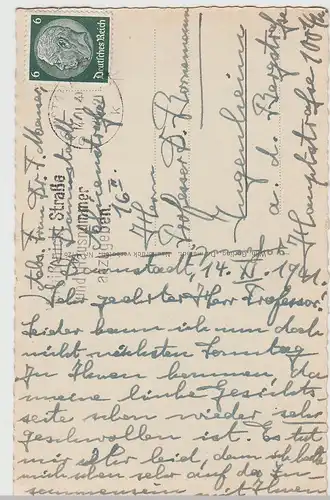 6
Deutsches Reich
Abs. Frau Dr. T.
Darmstadt
16 II.
Straße
und Hausnummer
angeben
Herrn
Professor D. Bornemann
Jugenheim
a. d. Bergstraße
Hauptstraße
Darmstadt, 14. 1941.
Sehr geehrter Herr Professor.
Leider kann ich nun doch
nicht nächsten Sonntag
zu Ihnen kommen, da
meine linke Gesichts
seite schon wieder sehr
geschwollen ist. Es tut
mir sehr leid, denn ich hatte
mich schon sehr auf das Zu-
sammensein mit Ihnen